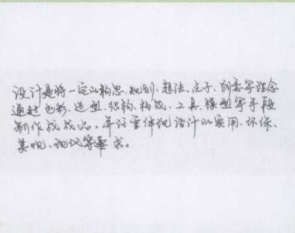 设计是将一定的构思、规划、想法、点子、创意等理念
通过色彩、造型、结构、构成、工具、模型等手段
制作成成品。并注重体现设计的实用、环保、
美观、等要求。